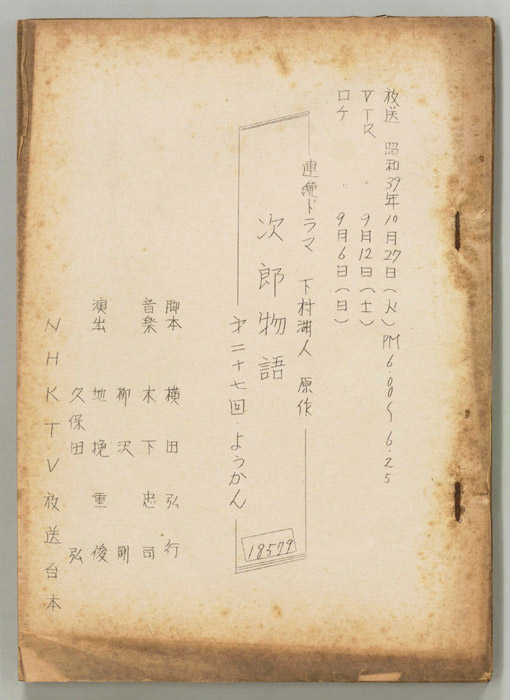 放送 昭和39年10月27日(火)PM6.00〜6.25
VTR 〃 9月12日(土)
ロケ 〃 9月6日(日)
連続ドラマ 下村湖人 原作
次郎物語
才二十七回・ようかん
18579
脚本 横田弘行
音楽 木下忠司
柳沢 剛
演出 地挽重俊
久保田 弘
NHKTV放送台本